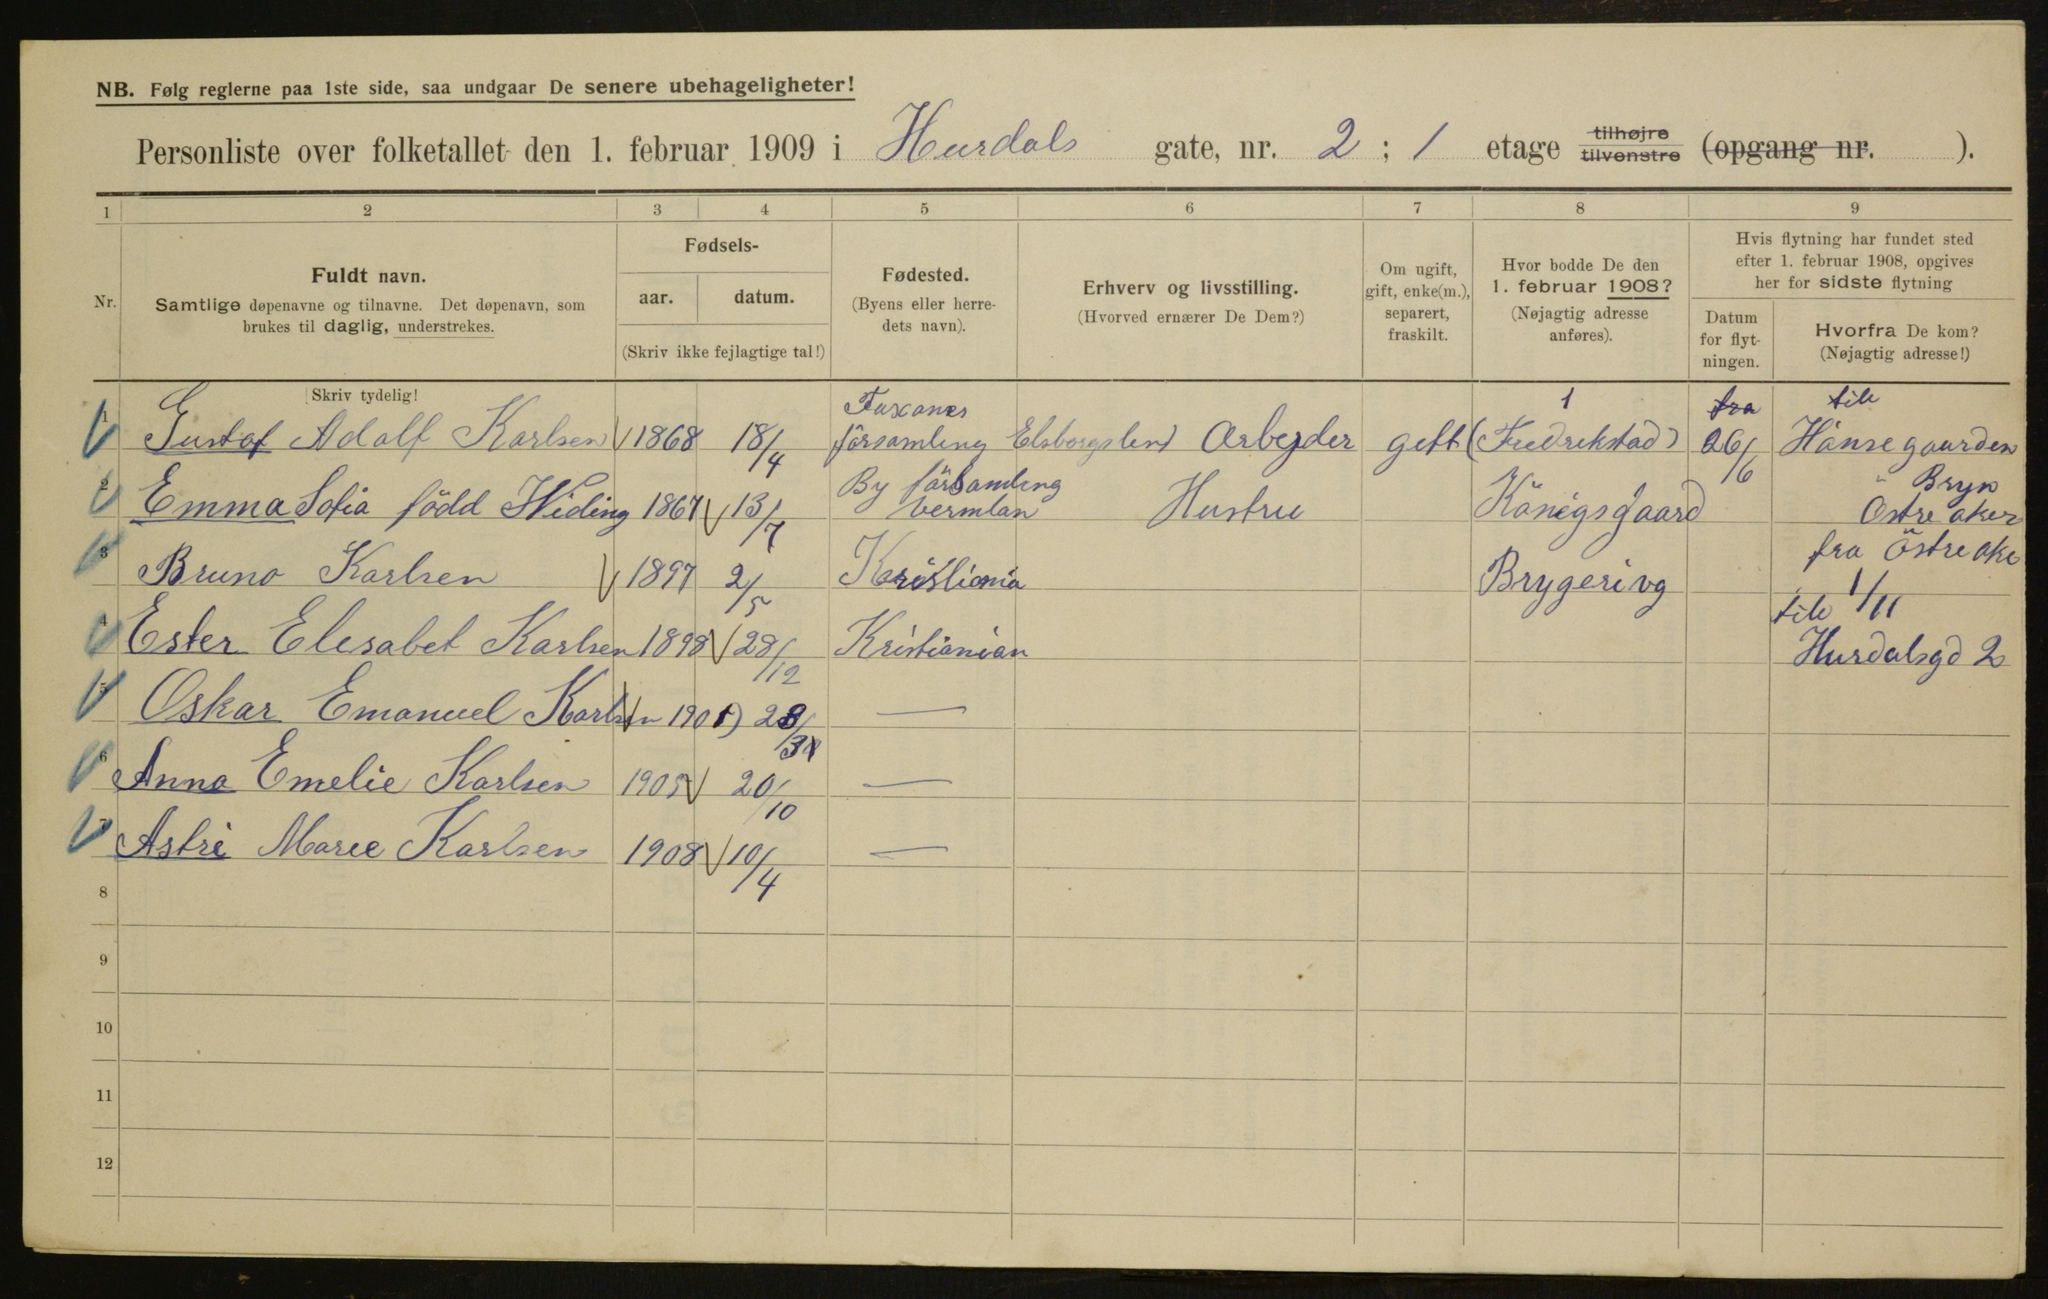 NB. Følg reglerne paa 1ste side, saa undgaar De senere ubehageligheter!
Personliste over folketallet den 1. februar 1909 i Hurdals gate, nr. 2 ; 1 etage tilhøjre tilvenstre (opgang nr. ).
1 2 3 4 5 6 7 8 9
Nr.
Fuldt navn.
Samtlige døpenavne og tilnavne. Det døpenavn, som
brukes til daglig, understrekes.
Skriv tydelig!
Fødsels-
aar. datum.
(Skriv ikke fejlagtige tal!)
Fødested.
(Byens eller herre-
dets navn).
Erhverv og livsstilling.
(Hvorved ernærer De Dem?)
Om ugift,
gift, enke(m.),
separert,
fraskilt.
Hvor bodde De den
1. februar 1908?
(Nøjagtig adresse
anføres).
Hvis flytning har fundet sted
efter 1. februar 1908, opgives
her for sidste flytning
Datum
for flyt-
ningen.
Hvorfra De kom?
(Nøjagtig adresse!)
Faxanes 1 fra till
1 Gustaf Adolf Karlsen 1868 18/4 församling Elsborgslen Arbejder gett (Fredrikstad) 26/6 Hänsegaarden
By församling Bryn
2 Emma Sofia född Widing 1867 13/7 Vermlan Hustru Känigsgaard Östre aker
fra Östre ake
3 Bruno Karlsen 1897 2/5 Kristiania Brygerivg 1/11
till
4 Ester Elesabet Karlsen 1898 28/12 Kristianian Hurdalsgd 2
5 Oskar Emanuel Karlsen 1901 —
6 Anna Emelie Karlsen 1905 20/10 —
7 Astri Marie Karlsen 1908 10/4 —
8
9
10
11
12